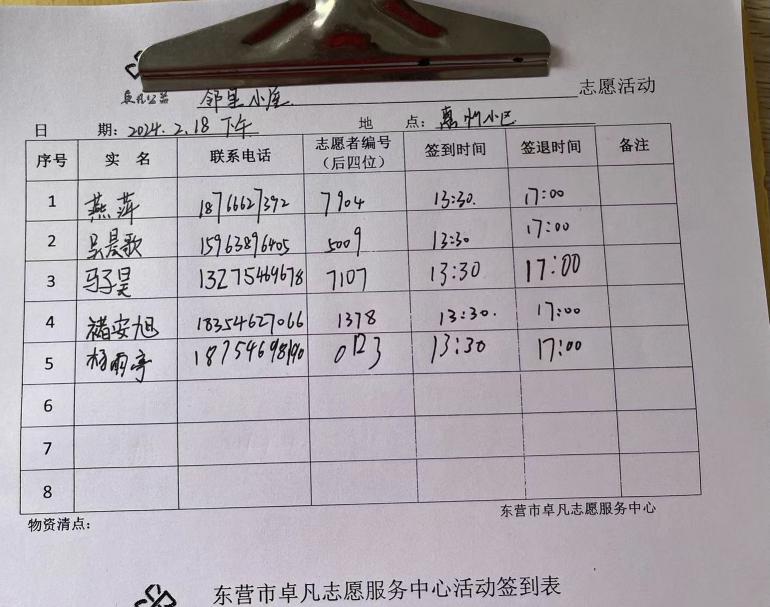 卓凡公益 邻里小屋 志愿活动
日 期：2024.2.18 下午 地 点：惠州小区
序号 实 名 联系电话 志愿者编号（后四位） 签到时间 签退时间 备注
1 燕萍 18766627392 7904 13:30. 17:00
2 吴晨歌 15963896405 5009 13:30 17:00
3 马子昊 13275469678 7107 13:30 17:00
4 褚安旭 18354627066 1378 13:30. 17:00
5 杨雨亭 18754698190 0123 13:30 17:00
6
7
8
物资清点： 东营市卓凡志愿服务中心
东营市卓凡志愿服务中心活动签到表